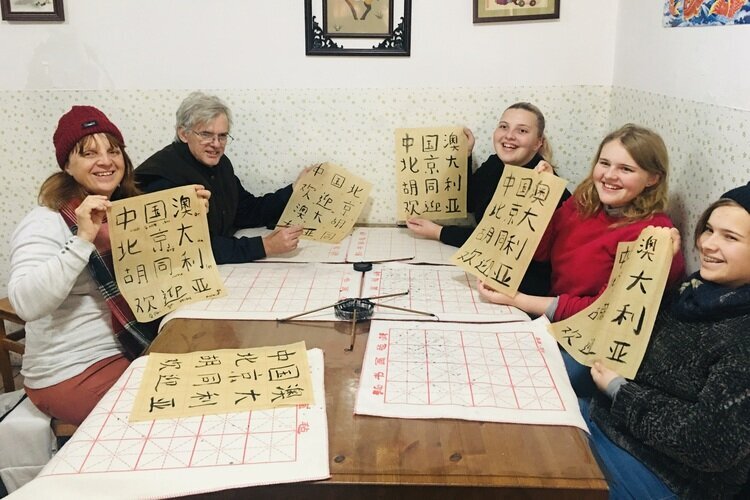 中国澳
北京大
胡同利
欢迎亚
中国北
欢迎京
澳大
中国澳
北京大
胡同利
欢迎亚
中国澳
北京大
胡同利
欢迎亚
澳
大
同利
欢迎亚
中国澳
北京大
胡同利
欢迎亚